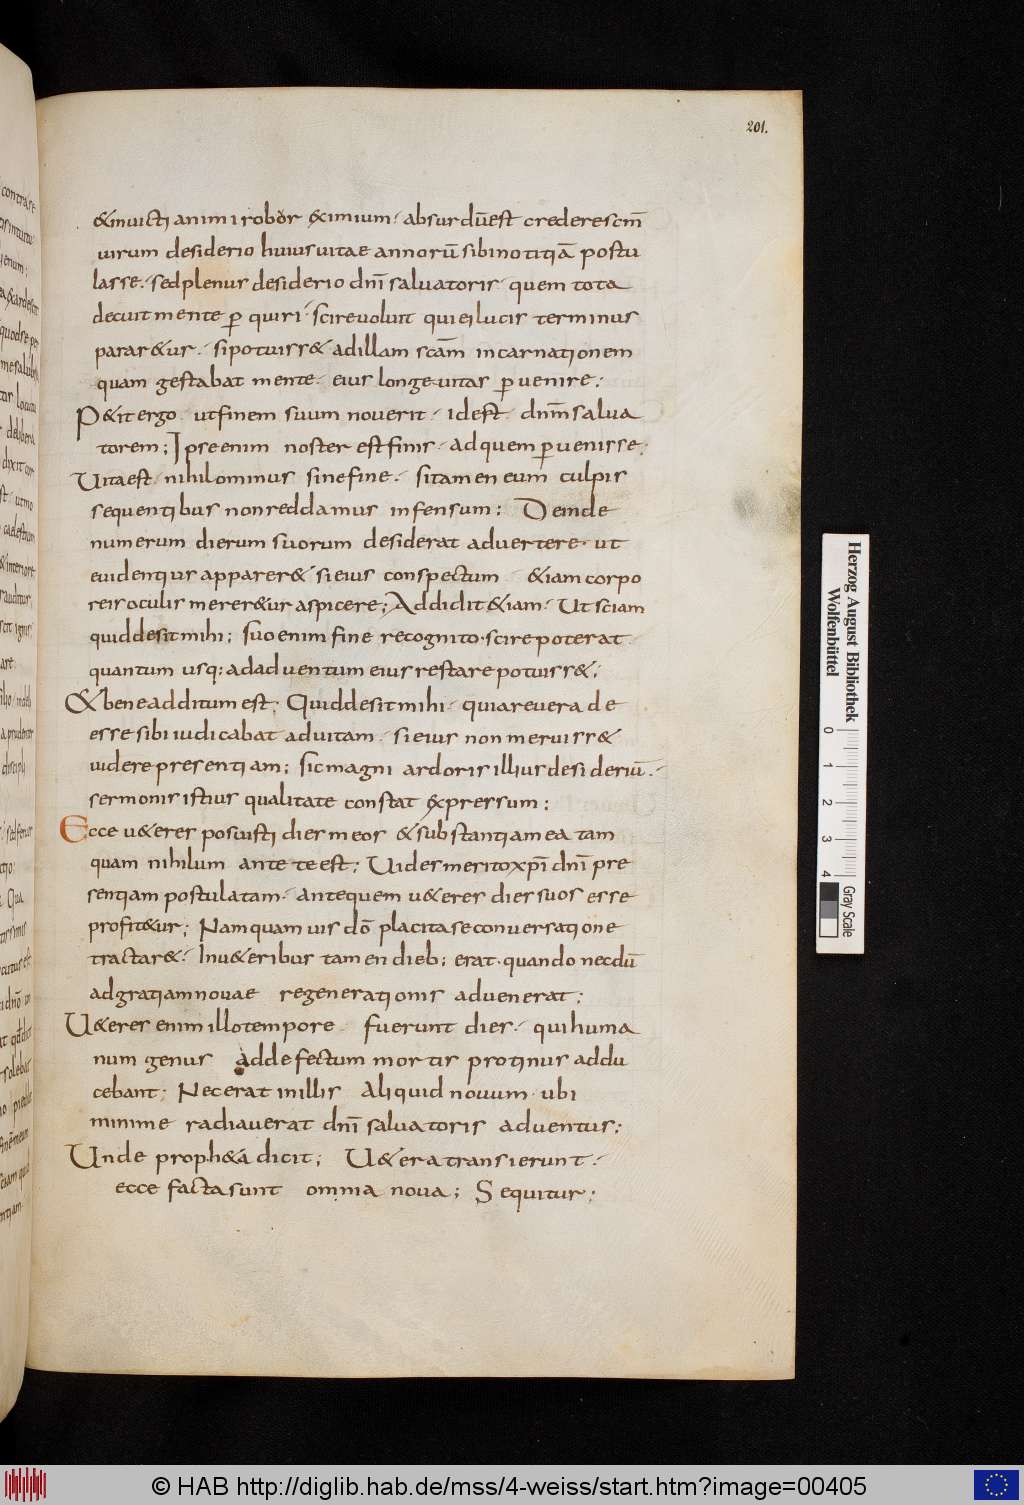 201.
&inuicti animi robor eximium· absurdū est credere scm̄
uirum desiderio huius uitae annorū sibi notitiā postu
lasse· sed plenus desiderio dn̄i saluatoris· quem tota
decuit mente ꝑquiri· scire uoluit qui ei lucis terminus
parar&ur· si potuiss& ad illam scām incarnationem
quam gestabat mente· eius longe uitas ꝑuenire;
P&it ergo ut finem suum nouerit· id est dnm̄ salua
torem; Ipse enim noster est finis· ad quem ꝑuenisse
Uita est· nihilominus sine fine· si tamen eum culpis
sequentibus non reddamus infensum; Deinde
numerum dierum suorum desiderat aduertere· ut
euidentius apparer& si eius conspectum &iam corpo
reis oculis merer&ur aspicere; Addidit &iam· Ut sciam
quid desit mihi; suo enim fine recognito· scire poterat
quantum usq; ad aduentum eius restare potuiss&;
& bene additum est; Quid desit mihi· quia reuera de
esse sibi iudicabat ad uitam· si eius non meruiss&
uidere presentiam; sic magni ardoris illius desiderium̄·
sermonis istius qualitate constat expressum;
Ecce u&eres posuisti dies meos &substantia mea tam
quam nihilum ante te est; Uides merito xp̄i dn̄i pre
sentiam postulatam· ante quem u&eres dies suos esse
profit&ur; Nam quamuis dō placita se conuersatione
tractar&· In u&eribus tamen dieb; erat· quando necdū
ad gratiam nouae regenerationis aduenerat;
U&eres enim illo tempore fuerunt dies· qui huma
num genus ad defectum mortis protinus addu
cebant; Nec erat in illis aliquid nouum· ubi
minime radiauerat dn̄i saluatoris aduentus;
Unde proph&a dicit; U&era transierunt·
ecce facta sunt omnia noua; Sequitur;
Herzog August Bibliothek
Wolfenbüttel
0 1 2 3 4
Gray Scale
© HAB http://diglib.hab.de/mss/4-weiss/start.htm?image=00405